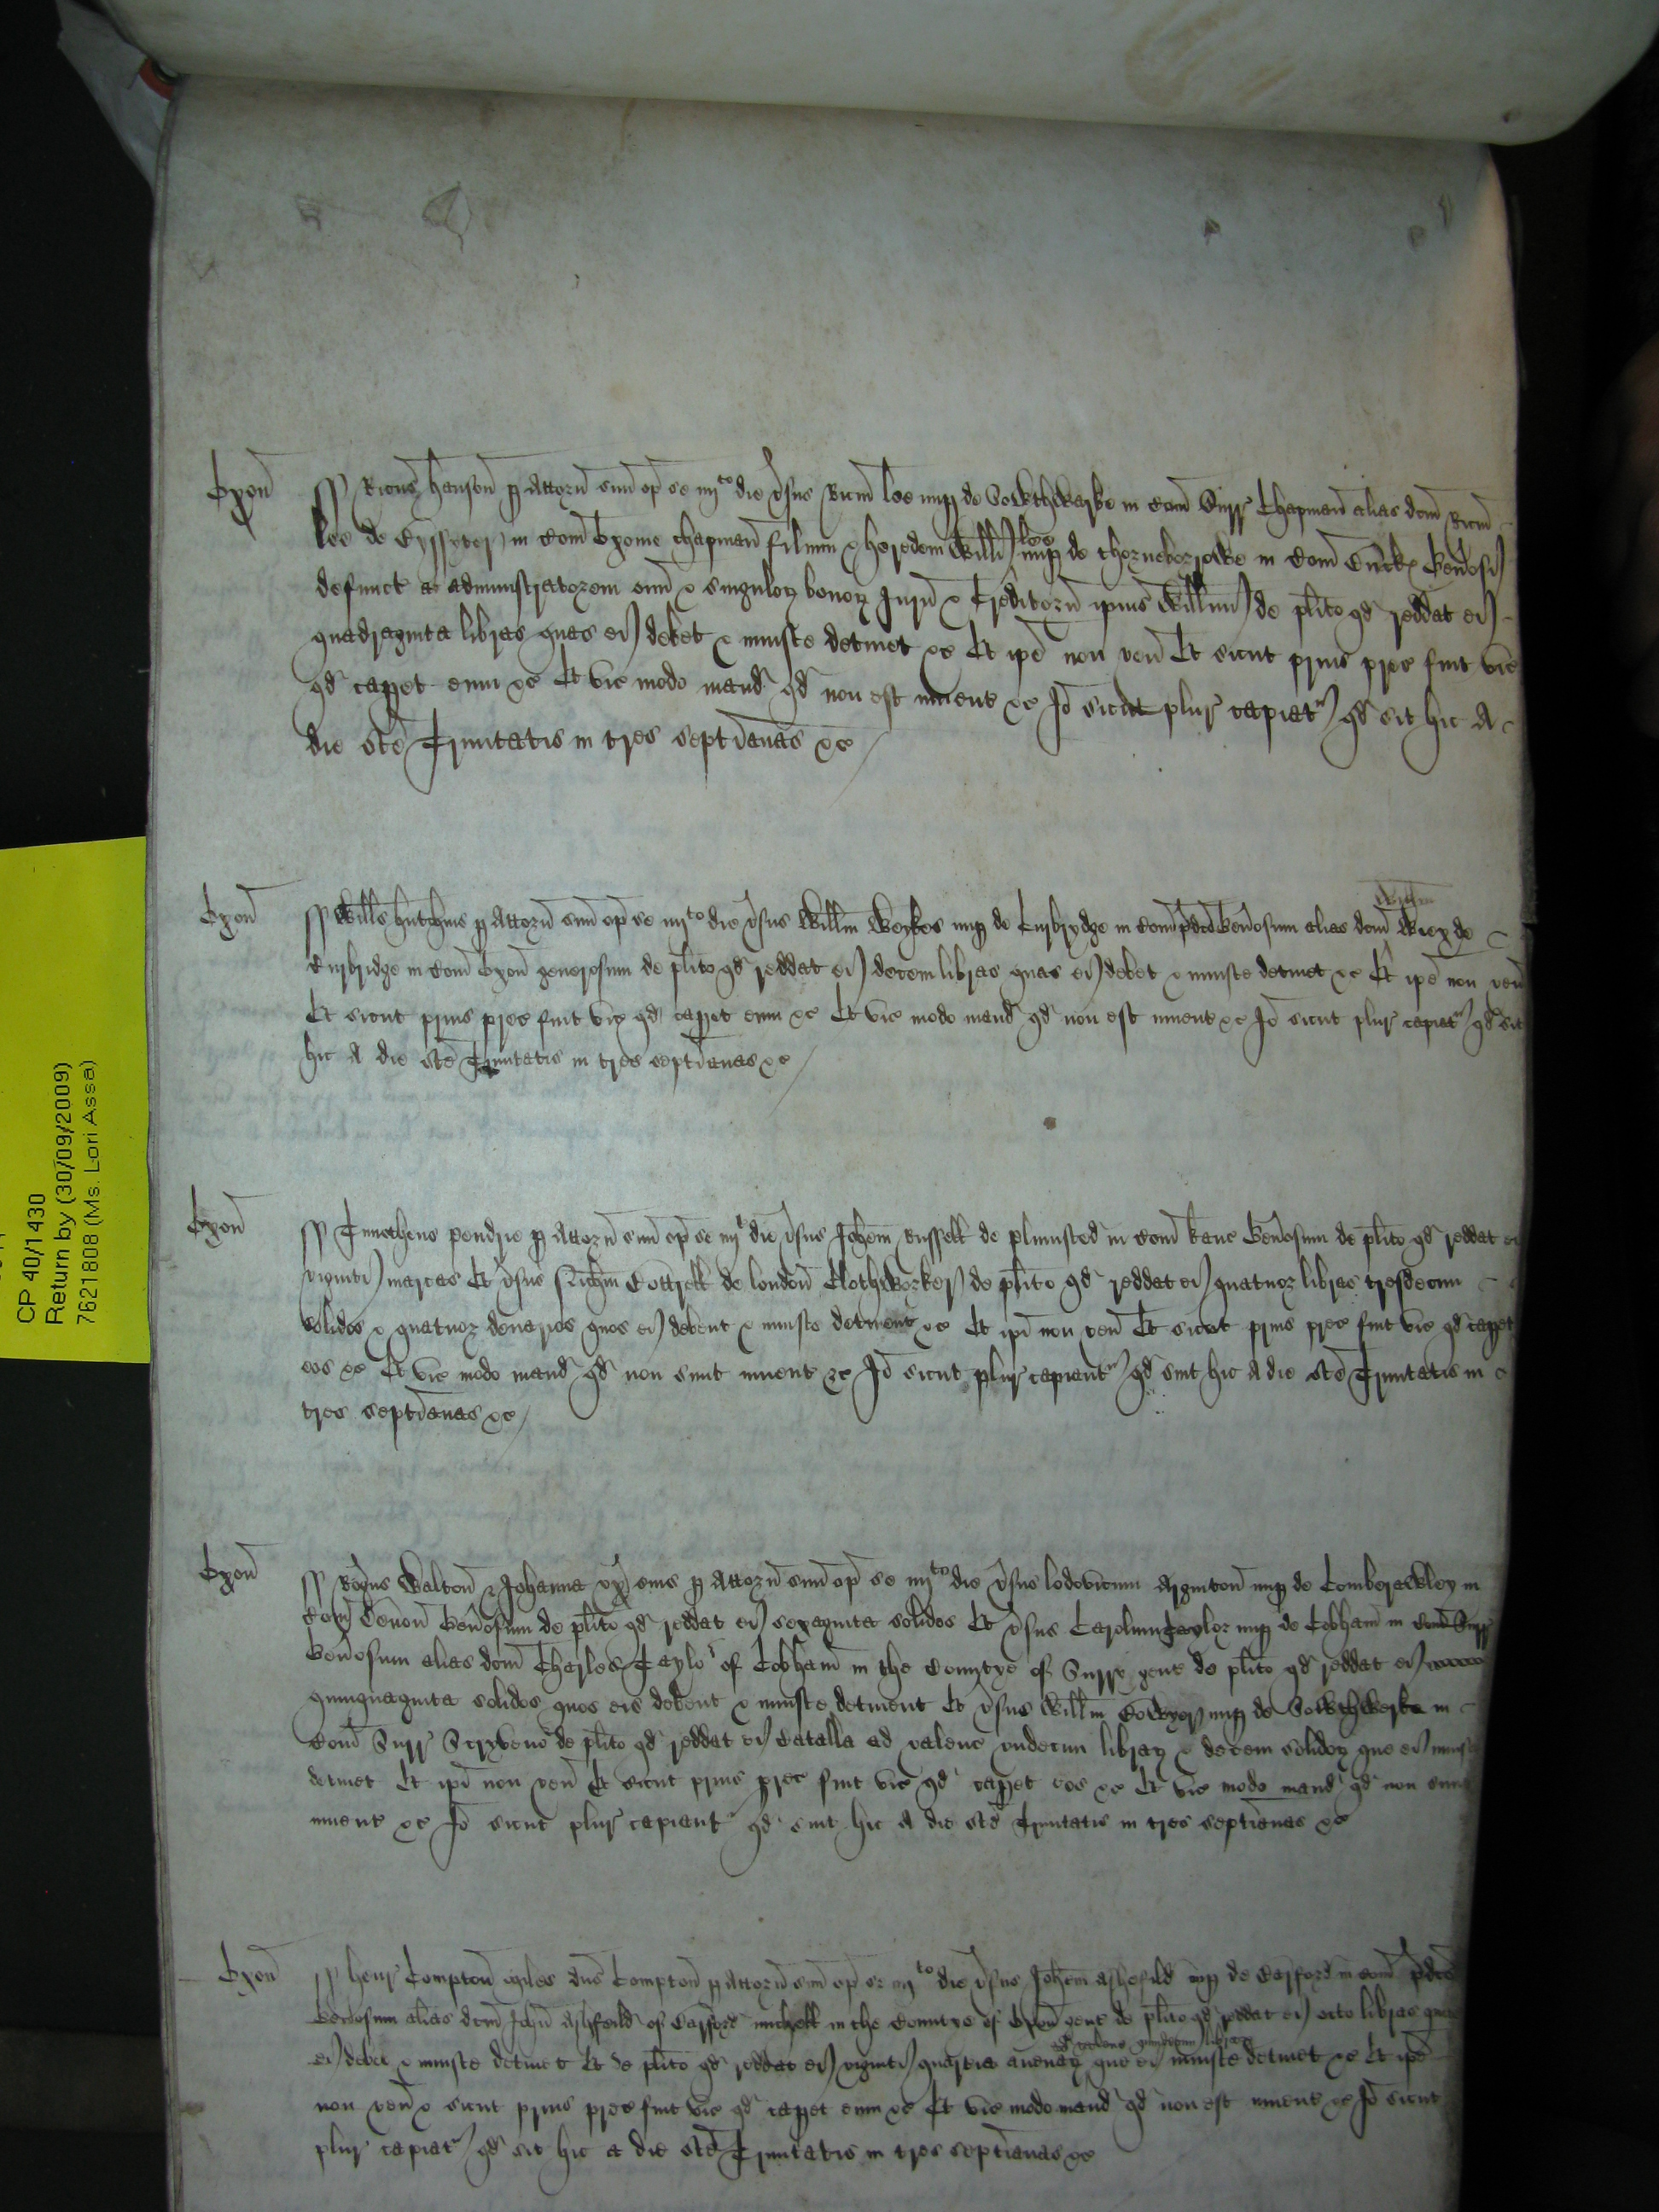 Oxon ss Ricus Hanson p Attorn suu op se iiijto die vsus Ricm lee nup de Sowthwarke in Com Surr Chapman alias dcm Ricm
lee de in Com Oxonie chapman filium & heredem Willi lee nup de thorneborowe in Com Buck Genosi
defunct ac administratorem oim & singulor bonor Juriu & Creditoru ipius Willmi de plito qd reddat ei
quadraginta libras quas ei debet & iniuste detinet &c Et ipe non ven Et sicut prius prec fuit vic
qd capet eum &c Et vic modo mand qd non est invent &c Io sicut plur capiat qd sit hic A
die sce Trinitatis in tres septianas &c
Oxon ss Wills hutchins p Attorn suu op se iiijto die vsus Willm Weykes nup de Curbrydge in Com pdco Genosum alias dcm Willm de
Curbridge in Com Oxon generosum de plito qd reddat ei decem libras quas ei debet & iniuste detinet &c Et ipe non ven
Et sicut prius prec fuit vic qd capet eum &c Et vic modo mand qd non est invent &c Io sicut plur capiat qd sit
hic A die sce Trinitatis in tres septianas &c
Oxon ss Timotheus pendrie p Attorn suu op se iiijt die vsus Johem Russell de plumsted in Com kanc Genosum de plito qd reddat ei
viginti marcas Et vsus Cottrell de london Clothworker de plito qd reddat ei quatuor libras tresdecim
solidos & quatuor denarios quos ei debent & iniuste detinent &c Et ipi non ven Et sicut prius prec fuit vic qd capet
eos &c Et vic modo mand qd non sunt invent &c Io sicut plur capiant qd sint hic A die sce Trinitatis in
tres septianas &c
Oxon ss Rogus Walton & Johanna vx eius p Attorn suu op se iiijto die vsus lodovicum nup de Comberawley in
Com Devon Genosum de plito qd reddat ei sexaginta solidos Et vsus Carolum taylor nup de Cobham in Com Surr
Genosum alias dcm Charles Taylor of Cobham in the Countye of Surry gent de plito qd reddat ei
quinquaginta solidos quos eis debent & iniuste detinent Et vsus Willm nup de Sowthwerke in
Com Surr Scryveno de plito qd reddat ei Catalla ad valenc undecim librar & decem solidor que ei iniuste
detinet Et ipi non ven Et sicut prius prec fuit vic qd capet eos &c Et vic modo mand qd non sunt
invent &c Io sicut plur capiant qd sint hic A die sce Trinitatis in tres septianas &c
Oxon ss henr Compton miles dns Compton p Attorn suu op se iiijto die vsus Johem Ashefild nup de in com pdco
Genosum alias dcm John Ashfeild of in the Countye of Oxon gent de plito qd reddat ei octo libras quas
ei debet & iniuste detinet Et de plito qd reddat ei viginti quarteria avenar ad valenc quindecim librar que ei iniuste detinet &c Et ipe
non ven & sicut prius prec fuit vic qd capet eum &c Et vic modo mand qd non est invent &c Io sicut
plur capiat qd sit hic a die sce Trinitatis in tres septianas &c
CP 40/1430
Return by (30/09/2009)
7621808 (Ms. Lori Assa)